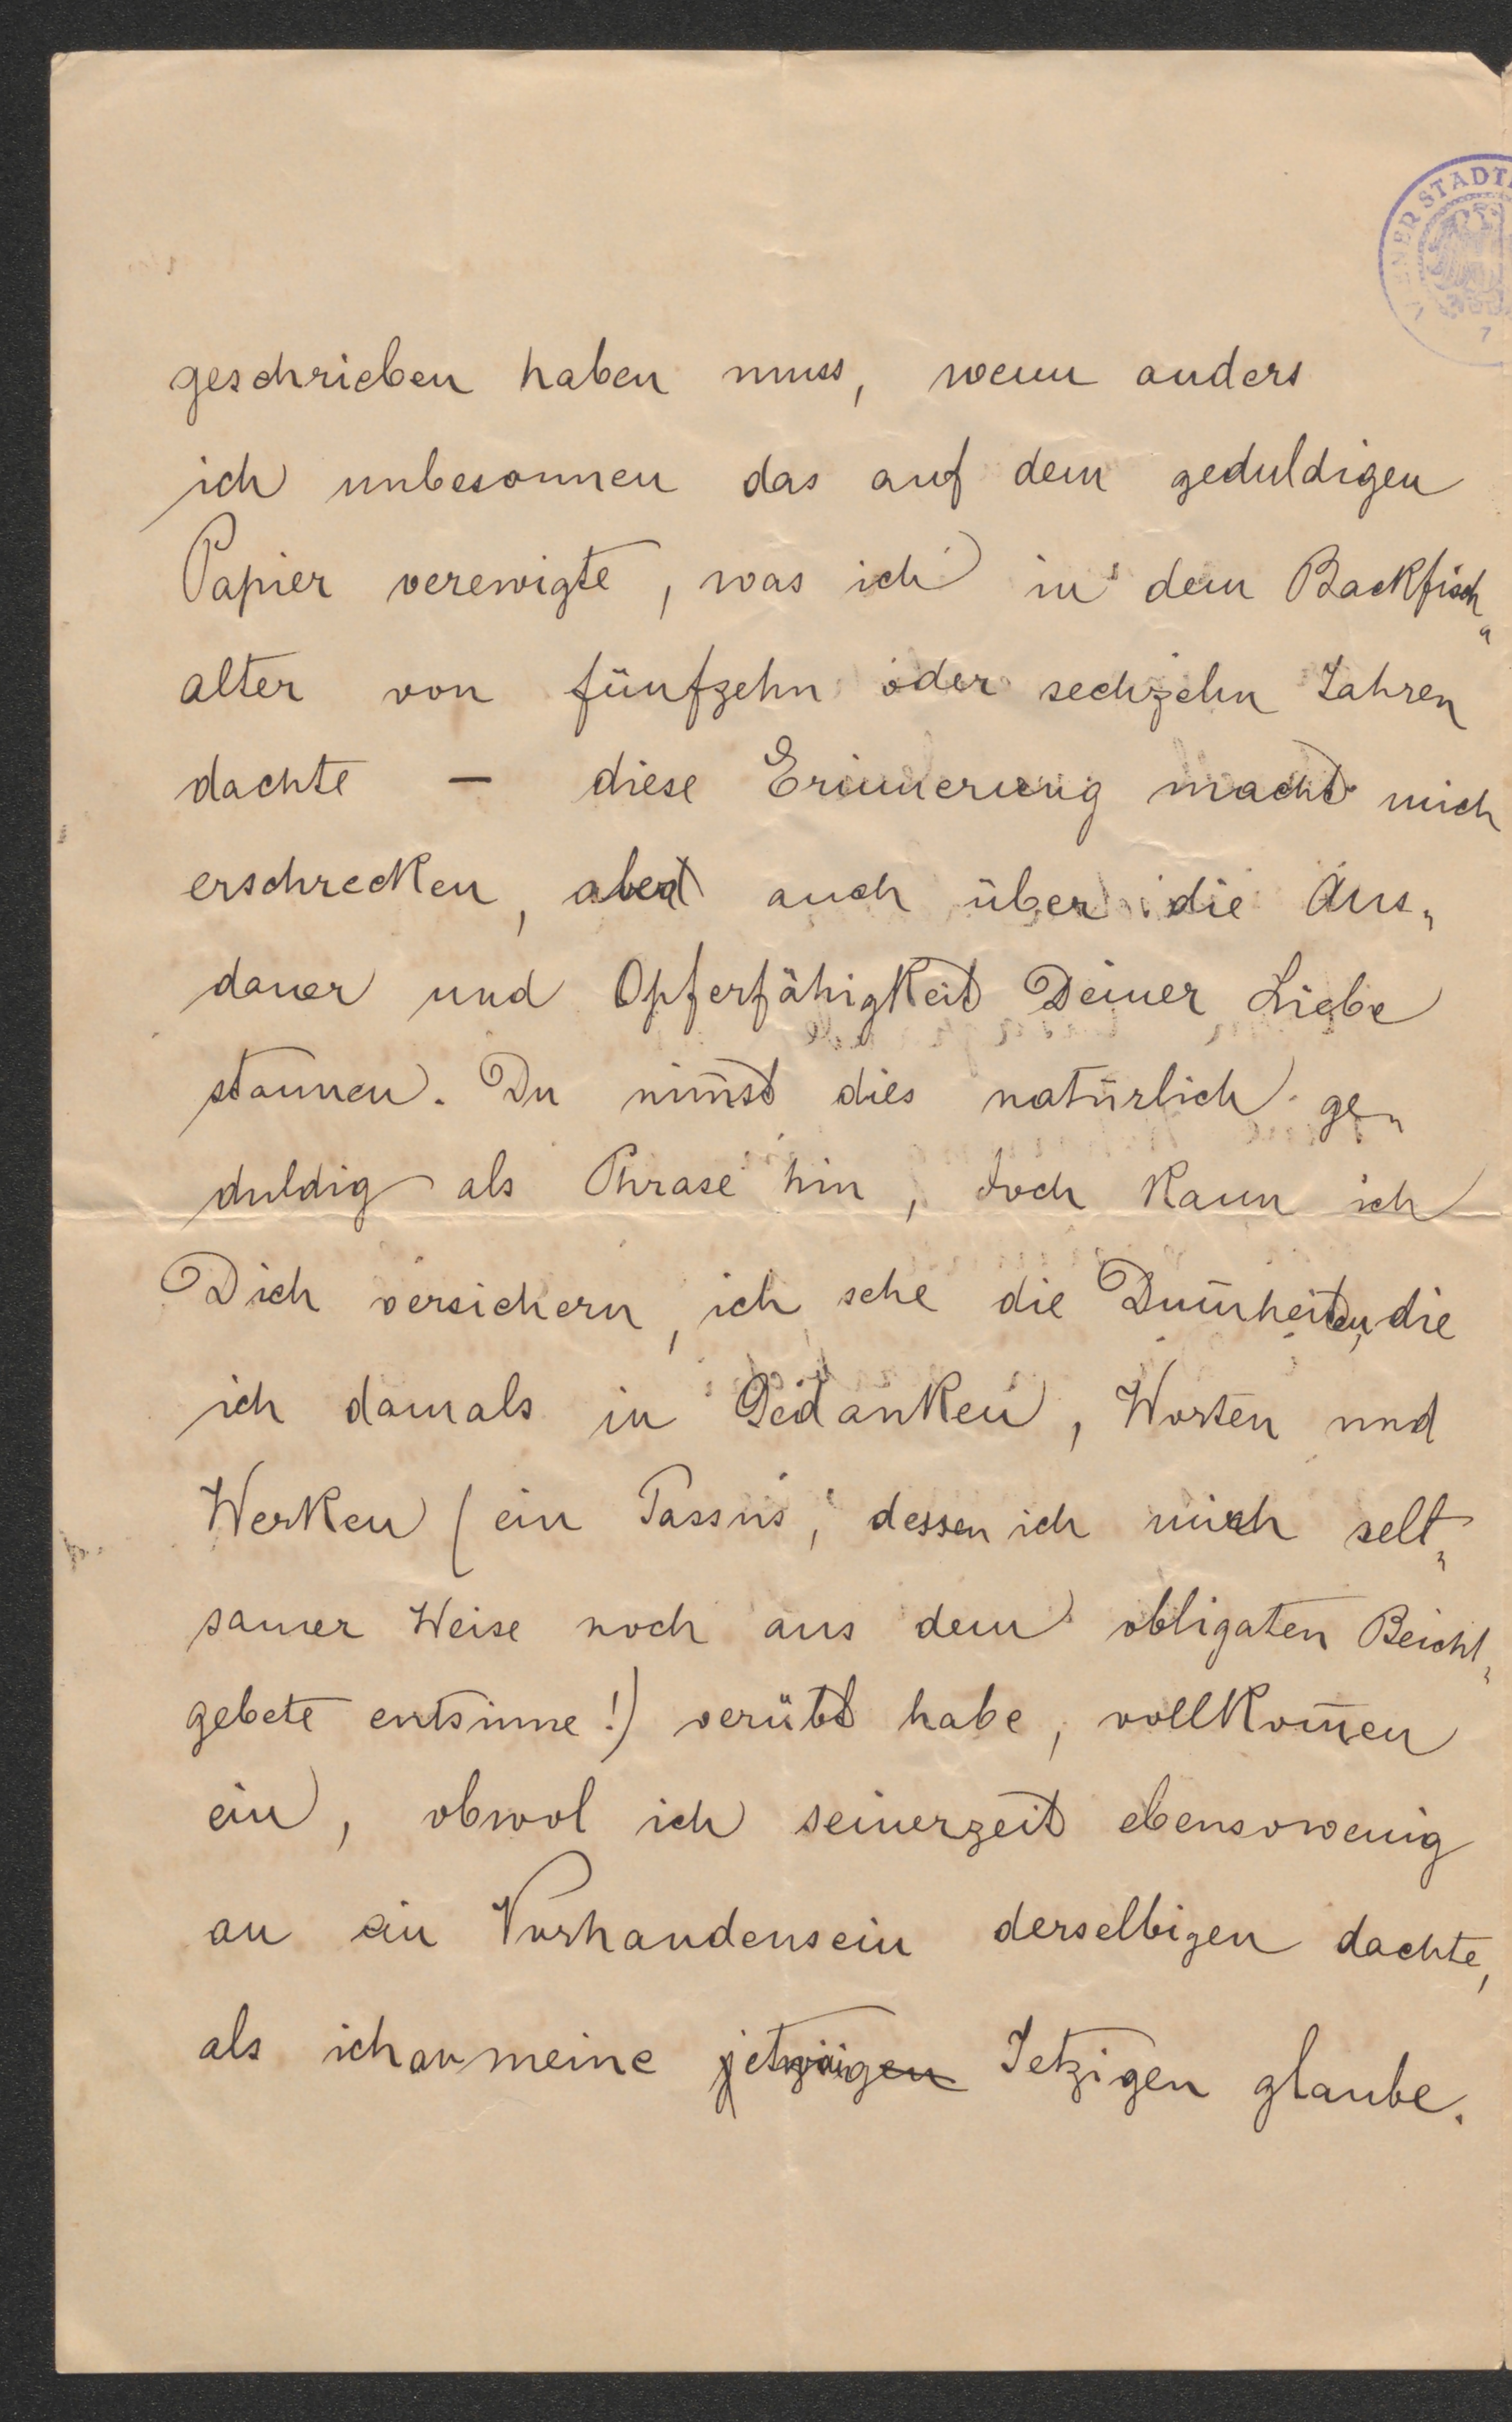 WIENER STADT
7
geschrieben haben muss, wenn anders
ich unbesonnen das auf dem geduldigen
Papier verewigte, was ich in dem Backfisch„
alter von fünfzehn oder sechzehn Jahren
dachte – diese Erinnerung macht mich
erschrecken, aber auch über die Aus„
dauer und Opferfähigkeit Deiner Liebe
staunen. Du nim̄st dies natürlich ge„
duldig als Phrase hin, doch kann ich
Dich versichern, ich sehe die Dum̄heiten, die
ich damals in Gedanken, Worten und
Werken (ein Passus, dessen ich mich selt„
samer Weise noch aus dem obligaten Beicht„
gebete entsinne!) verübt habe, vollkom̄en
ein, obwol ich seinerzeit ebensowenig
an ein Vorhandensein derselbigen dachte,
als ich an meine jetzigen Jetzigen glaube.